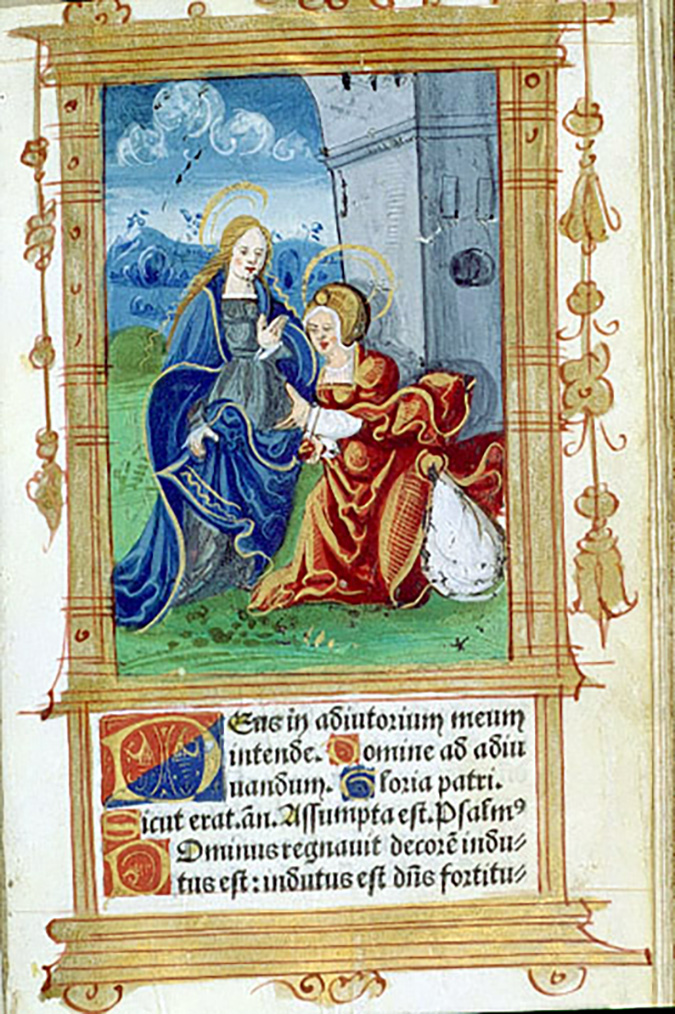 Deus in adiutorium meum
intende. Domine ad adiu
uandum. Gloria patri.
Sicut erat. añ. Assumpta est. Psalmꝰ
Dominus regnauit decorē indu⸗
tus est: indutus est dñs fortitu⸗